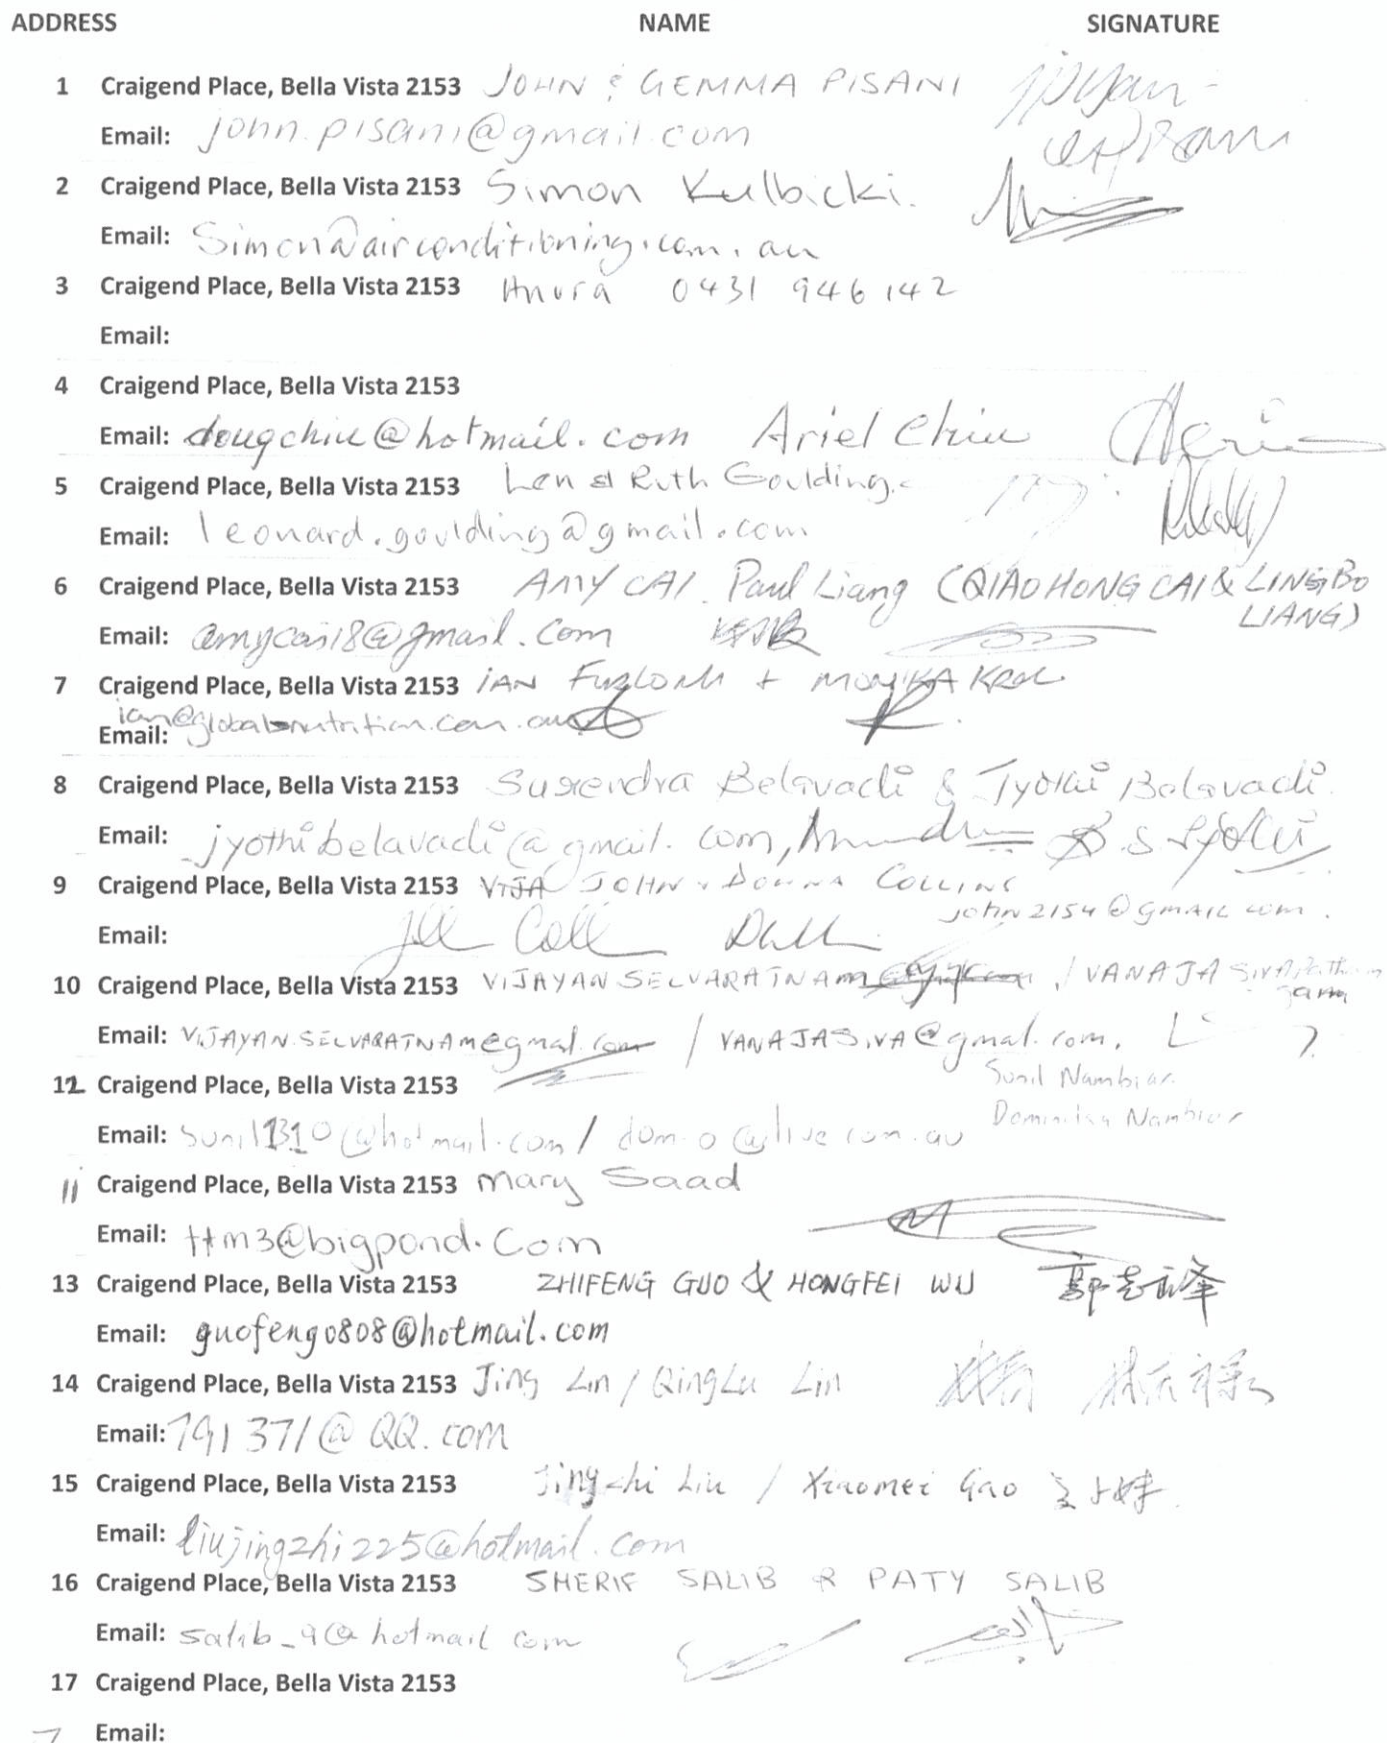 ADDRESS NAME SIGNATURE
1 Craigend Place, Bella Vista 2153 JOHN & GEMMA PISANI
Email: john.pisani@gmail.com
2 Craigend Place, Bella Vista 2153 Simon Kulbicki.
Email: Simon@airconditioning.com.au
3 Craigend Place, Bella Vista 2153 Anura 0431 946 142
Email:
4 Craigend Place, Bella Vista 2153
Email: dougchiu@hotmail.com Ariel Chiu
5 Craigend Place, Bella Vista 2153 Len & Ruth Goulding.
Email: leonard.goulding@gmail.com
6 Craigend Place, Bella Vista 2153 AMY CAI. Paul Liang (QIAOHONG CAI & LINGBO
LIANG)
Email: amycai18@gmail.com
7 Craigend Place, Bella Vista 2153 IAN + MONIKA KROL
ian@globalnutrition.com.au
Email:
8 Craigend Place, Bella Vista 2153 Surendra Belavadi & Jyothi Belavadi.
Email: jyothibelavadi@gmail.com,
9 Craigend Place, Bella Vista 2153 JOHN & DONNA COLLINS
john2154@gmail.com.
Email:
10 Craigend Place, Bella Vista 2153 VIJAYAN SELVARATNAM / VANAJA
Email: VIJAYAN.SELVARATNAM@gmal.com / VANAJASIVA@gmal.com.
Sunil Nambiar
12 Craigend Place, Bella Vista 2153
Nambiar
Email: sunil1310@hotmail.com / dom-o@live.com.au
11 Craigend Place, Bella Vista 2153 Mary Saad
Email: ttm3@bigpond.com
13 Craigend Place, Bella Vista 2153 ZHIFENG GUO & HONGFEI WU 郭志峰
Email: guofeng0808@hotmail.com
14 Craigend Place, Bella Vista 2153 Jing Lin / QingLu Lin
Email: 791371@QQ.com
15 Craigend Place, Bella Vista 2153 Jingzhi Liu / Xiaomei Gao
Email: liujingzhi225@hotmail.com
16 Craigend Place, Bella Vista 2153 SHERIF SALIB & PATY SALIB
Email: salib_9@hotmail.com
17 Craigend Place, Bella Vista 2153
Email: